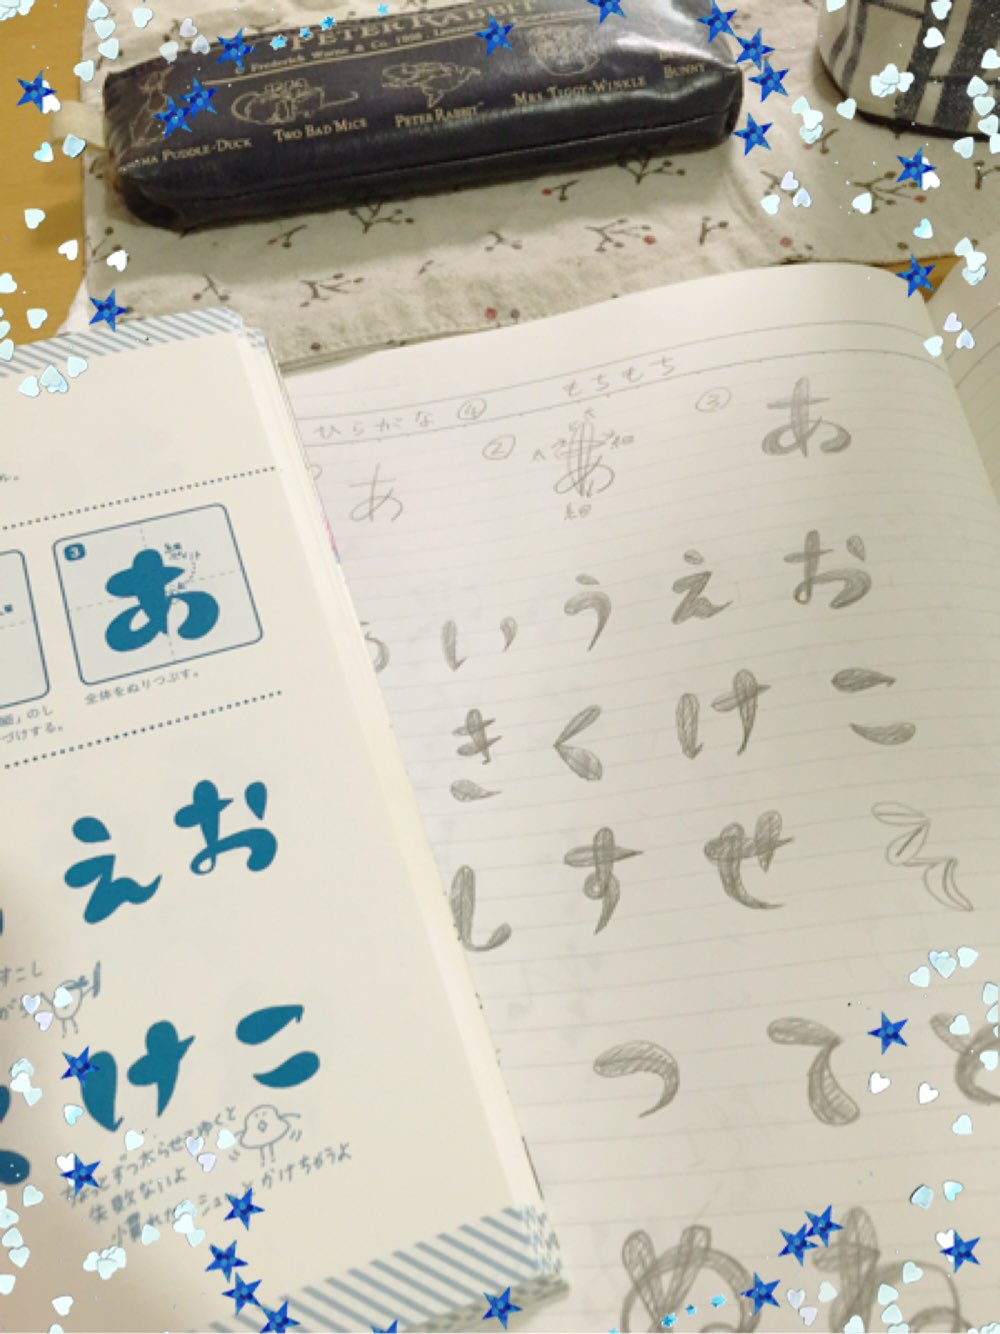 PETER RABBIT
© Frederick Warne & Co.
MA PUDDLE-DUCK
TWO BAD MICE
PETER RABBIT
MRS TIGGY-WINKLE
BUNNY
ひらがな ④ もちもち
あ ② あ ③ あ
太 細
細
い う え お
き く け こ
し す せ そ
つ て と
3
あ
全体をぬりつぶす。
のし
づけする。
え お
すこし
け こ
ちょっとずつ太らせてゆくと
失敗ないよ
かけちゃうよ